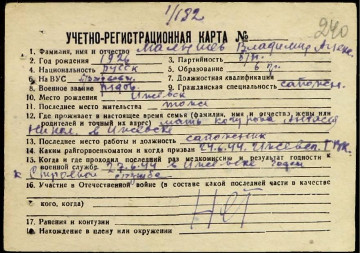 1/182
240
УЧЕТНО-РЕГИСТРАЦИОННАЯ КАРТА №
1. Фамилия, имя и отчество Малышев Владимир
2. Год рождения 1926 3. Партийность б/п.
4. Национальность русск 5. Образование 6 кл.
6. На ВУС 7. Должностная квалификация
8. Военное звание рядов 9. Гражданская специальность сапожн.
10. Место рождения Ижевск
11. Последнее место жительства тоже
12. Где проживает в настоящее время семья (фамилия, имя и отчество, жены или родителей и точный их адрес) мать
в Ижевске
13. Последнее место работы и должность сапожник
14. Каким райгорвоенкоматом и когда призван 24.6.44. Ижевск.
15. Когда и где проходил последний раз медкомиссию и результат годности к
военной службе 27.6.44 в Ижевске годен
к строевой службе
16. Участие в Отечественной войне (в составе какой последней части в качестве
кого, когда)
Нет
17. Ранения и контузии
18. Нахождение в плену или окружении